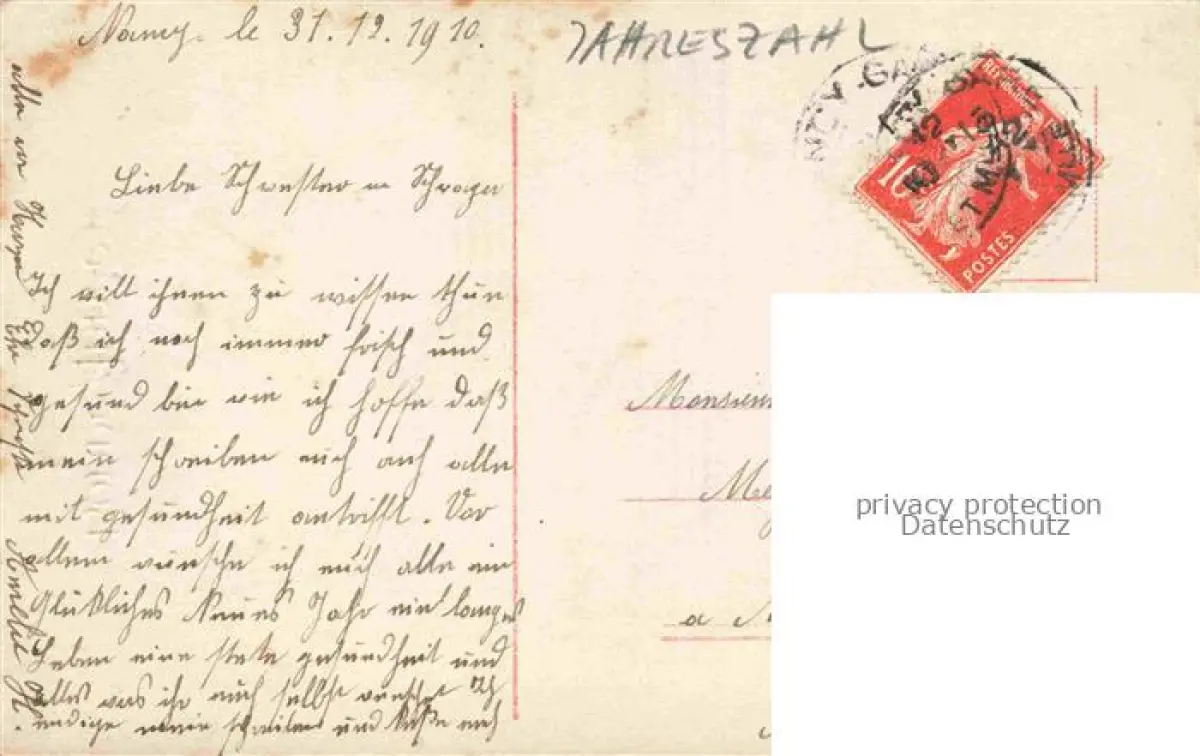 Nancy. le 31.12.1910.
JAHRESZAHL
Liebe Schwester u Schwager
Ich will ihnen zu wissen thun
daß ich noch immer frisch und
gesund bin wie ich hoffe daß
mein schreiben euch auch alle
mit gesundheit antrifft. Vor
allem wünsche ich euch alle ein
Glükliches Neues Jahr ein langes
Leben eine stete gesundheit und
alles was ihr euch selbst wünschet Ich
endige mein schreiben und Küße euch
alle
GARE
10
POSTES
Monsieur
a
privacy protection
Datenschutz